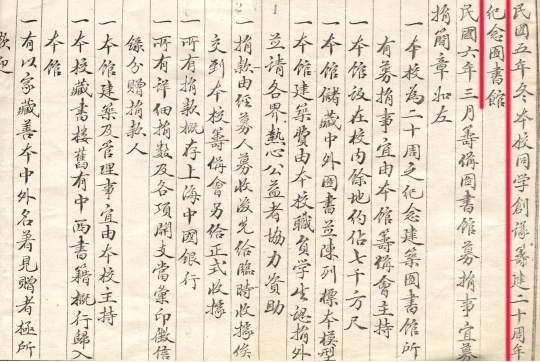 民國五年冬本校同學創議籌建二十周年
紀念圖書館
民國六年三月籌備圖書館募捐事宜募
捐簡章如左
一本校為二十周之紀念建築圖書館所
有募捐事宜由本館籌備會主持
一本館設在校內餘地約佔七千方尺
一本館儲藏中外圖書並陳列標本模型
一本館建築費由本校職員學生認捐外
並請各界熱心公益者協力資助
一捐款由經募人募收後先給臨時收據俟
交到本校籌備會另給正式收據
一所有捐款概存上海中國銀行
一所有詳細捐數及各項開支當彙印徵信
錄分贈捐款人
一本館建築及管理事宜由本校主持
一本校藏書樓舊有中西書籍概行歸入
本館
一有以家藏善本中外名著見贈者極所
歡迎